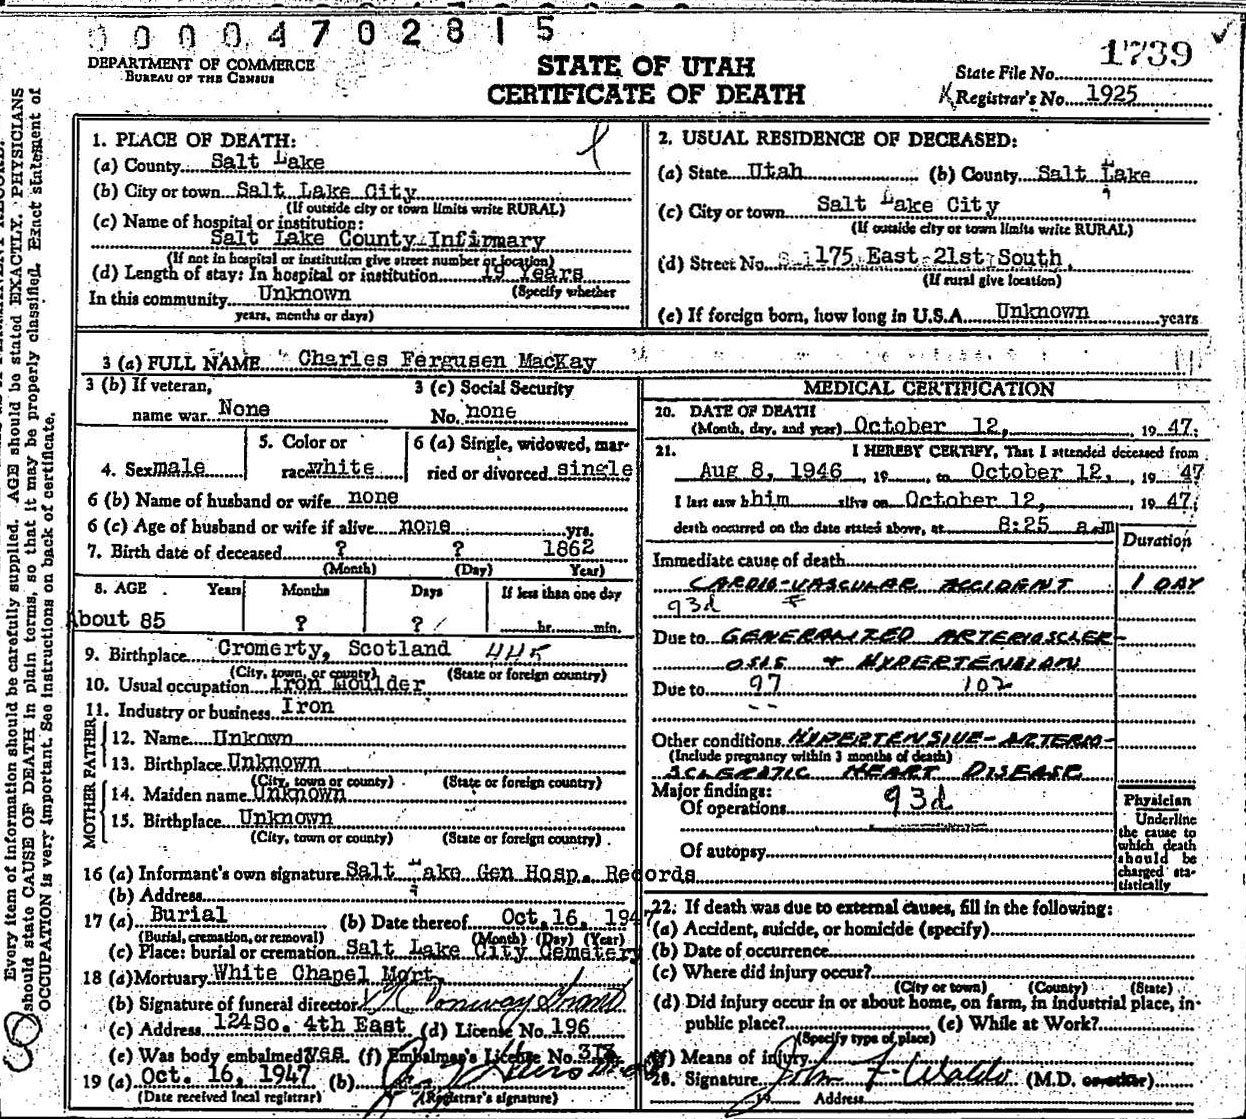 00004702815
DEPARTMENT OF COMMERCE
BUREAU OF THE CENSUS
STATE OF UTAH
CERTIFICATE OF DEATH
1739
State File No.
Registrar's No. 1925
Every item of information should be carefully supplied. AGE should be stated EXACTLY. PHYSICIANS
should state CAUSE OF DEATH in plain terms, so that it may be properly classified. Exact statement of
OCCUPATION is very important. See instructions on back of certificate.
1. PLACE OF DEATH:
(a) County Salt Lake
(b) City or town Salt Lake City
(If outside city or town limits write RURAL)
(c) Name of hospital or institution:
Salt Lake County Infirmary
(If not in hospital or institution give street number or location)
(d) Length of stay: In hospital or institution 19 Years
(Specify whether
In this community Unknown
years, months or days)
2. USUAL RESIDENCE OF DECEASED:
(a) State Utah (b) County Salt Lake
(c) City or town Salt Lake City
(If outside city or town limits write RURAL)
(d) Street No. 1175 East 21st South
(If rural give location)
(e) If foreign born, how long in U.S.A. Unknown years
3 (a) FULL NAME Charles Fergusen MacKay
3 (b) If veteran,
name war None
3 (c) Social Security
No. none
4. Sex male
5. Color or
race white
6 (a) Single, widowed, mar-
ried or divorced single
6 (b) Name of husband or wife none
6 (c) Age of husband or wife if alive none yrs.
7. Birth date of deceased ? ? 1862
(Month) (Day) Year)
8. AGE Years Months Days If less than one day
About 85 ? ? hr. min.
9. Birthplace Cromerty, Scotland 445
(City, town, or county) (State or foreign country)
10. Usual occupation Iron Moulder
11. Industry or business Iron
FATHER
12. Name Unkown
13. Birthplace Unknown
(City, town or county) (State or foreign country)
MOTHER
14. Maiden name Unknown
15. Birthplace Unknown
(City, town or county) (State or foreign country)
16 (a) Informant's own signature Salt Lake Gen Hosp. Records
(b) Address
17 (a) Burial (b) Date thereof Oct. 16, 1947
(Burial, cremation, or removal) (Month) (Day) (Year)
(c) Place: burial or cremation Salt Lake City Cemetery
18 (a) Mortuary White Chapel Mort.
(b) Signature of funeral director
(c) Address 124 So. 4th East (d) License No. 196
(e) Was body embalmed? yes (f) Embalmer's License No. 313
19 (a) Oct. 16, 1947 (b)
(Date received local registrar) (Registrar's signature)
MEDICAL CERTIFICATION
20. DATE OF DEATH
(Month, day, and year) October 12, 19 47;
21. I HEREBY CERTIFY, That I attended deceased from
Aug 8, 1946, 19, to October 12, 19 47
I last saw him alive on October 12, 19 47;
death occurred on the date stated above, at 8:25 a m
Duration
Immediate cause of death
CARDIO-VASCULAR ACCIDENT 1 DAY
93d
Due to GENERALIZED ARTERIOSCLER-
OSIS + HYPERTENSION
Due to 97 102
Other conditions HYPERTENSIVE-ARTERIO-
(Include pregnancy within 3 months of death)
SCLEROTIC HEART DISEASE
Major findings:
Of operations 93d
Of autopsy
Physician
Underline
the cause to
which death
should be
charged sta-
tistically
22. If death was due to external causes, fill in the following:
(a) Accident, suicide, or homicide (specify)
(b) Date of occurrence
(c) Where did injury occur?
(City or town) (County) (State)
(d) Did injury occur in or about home, on farm, in industrial place, in
public place? (e) While at Work?
(Specify type of place)
(f) Means of injury
23. Signature John F. Waldo (M.D. or other)
19 Address